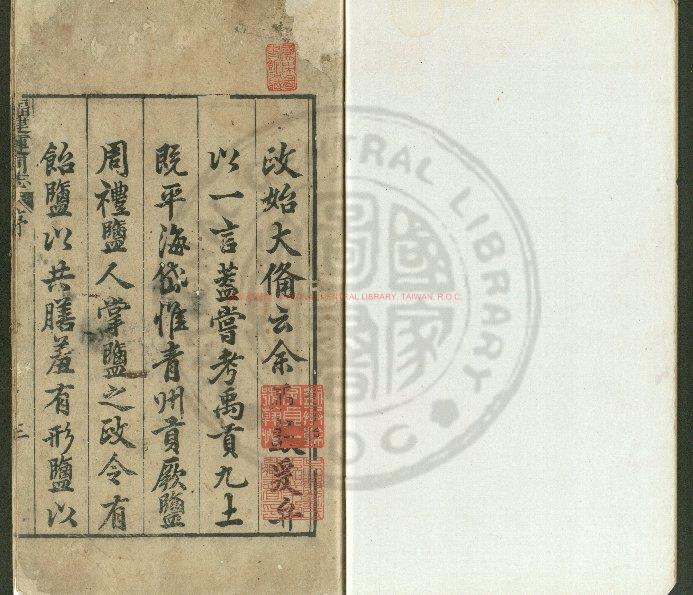 政始大俻云余爰弁
以一言蓋嘗考禹貢九土
既平海岱惟青州貢厥鹽
周禮鹽人掌鹽之政令有
飴鹽以共膳羞有形鹽以
福建運司志 序
三
CENTRAL LIBRARY, TAIWAN, R.O.C.
CENTRAL LIBRARY